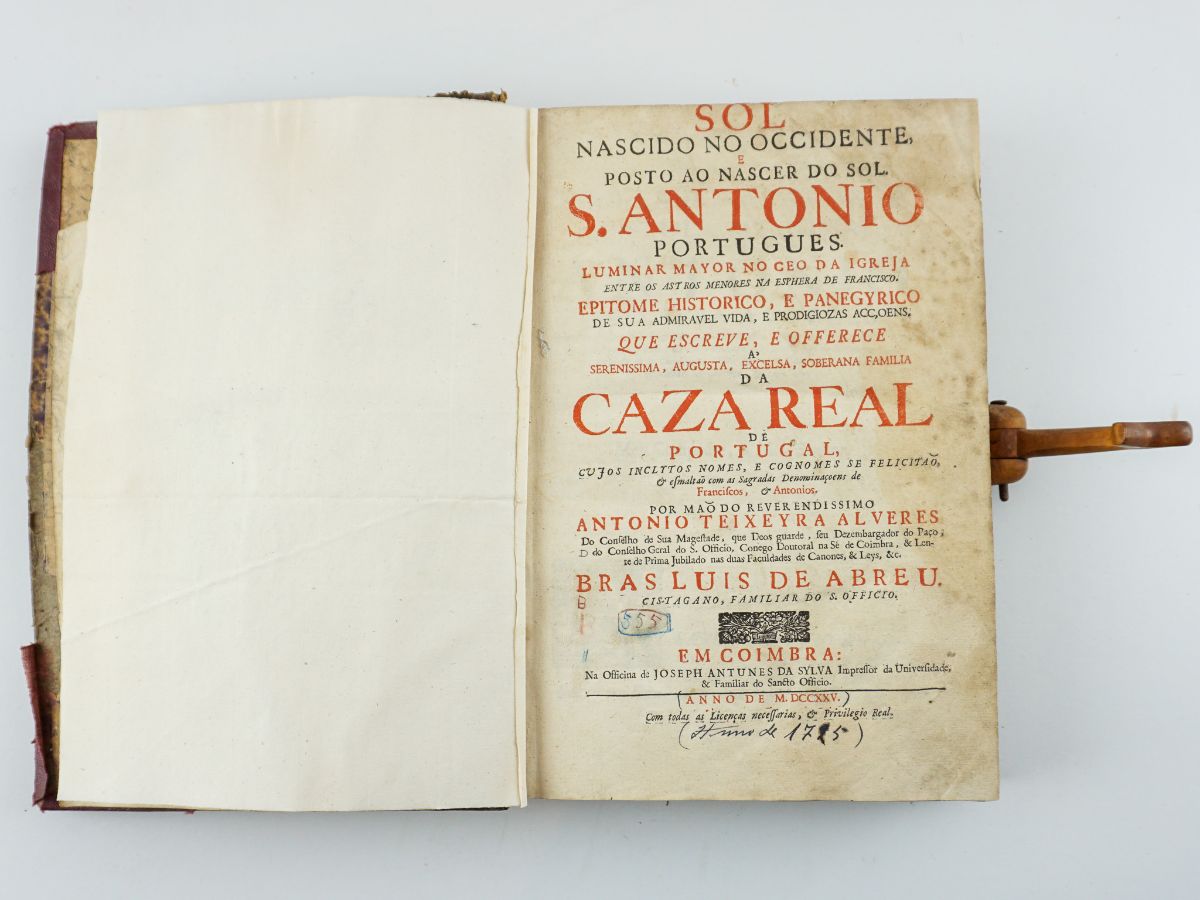 SOL
NASCIDO NO OCCIDENTE,
E
POSTO AO NASCER DO SOL.
S. ANTONIO
PORTUGUES.
LUMINAR MAYOR NO CEO DA IGREJA
ENTRE OS ASTROS MENORES NA ESPHERA DE FRANCISCO.
EPITOME HISTORICO, E PANEGYRICO
DE SUA ADMIRAVEL VIDA, E PRODIGIOZAS ACÇOENS.
QUE ESCREVE, E OFFERECE
A'
SERENISSIMA, AUGUSTA, EXCELSA, SOBERANA FAMILIA
DA
CAZA REAL
DE
PORTUGAL,
CUJOS INCLYTOS NOMES, E COGNOMES SE FELICITAÕ,
& esmaltaõ com as Sagradas Denominaçoens de
Franciscos, & Antonios.
POR MAÕ DO REVERENDISSIMO
ANTONIO TEIXEYRA ALVERES
Do Conselho de Sua Magestade, que Deos guarde, seu Dezembargador do Paço,
D do Conselho Geral do S. Officio, Conego Doutoral na Sè de Coimbra, & Len-
te de Prima Jubilado nas duas Faculdades de Canones, & Leys, &c.
BRAS LUIS DE ABREU.
CISTAGANO, FAMILIAR DO S. OFFICIO.
B
555
EM COIMBRA:
Na Officina de JOSEPH ANTUNES DA SYLVA Impressor da Universidade,
& Familiar do Sancto Officio.
(ANNO DE M. DCCXXV.)
Com todas as Licenças necessarias, & Privilegio Real.
(Anno de 1725)